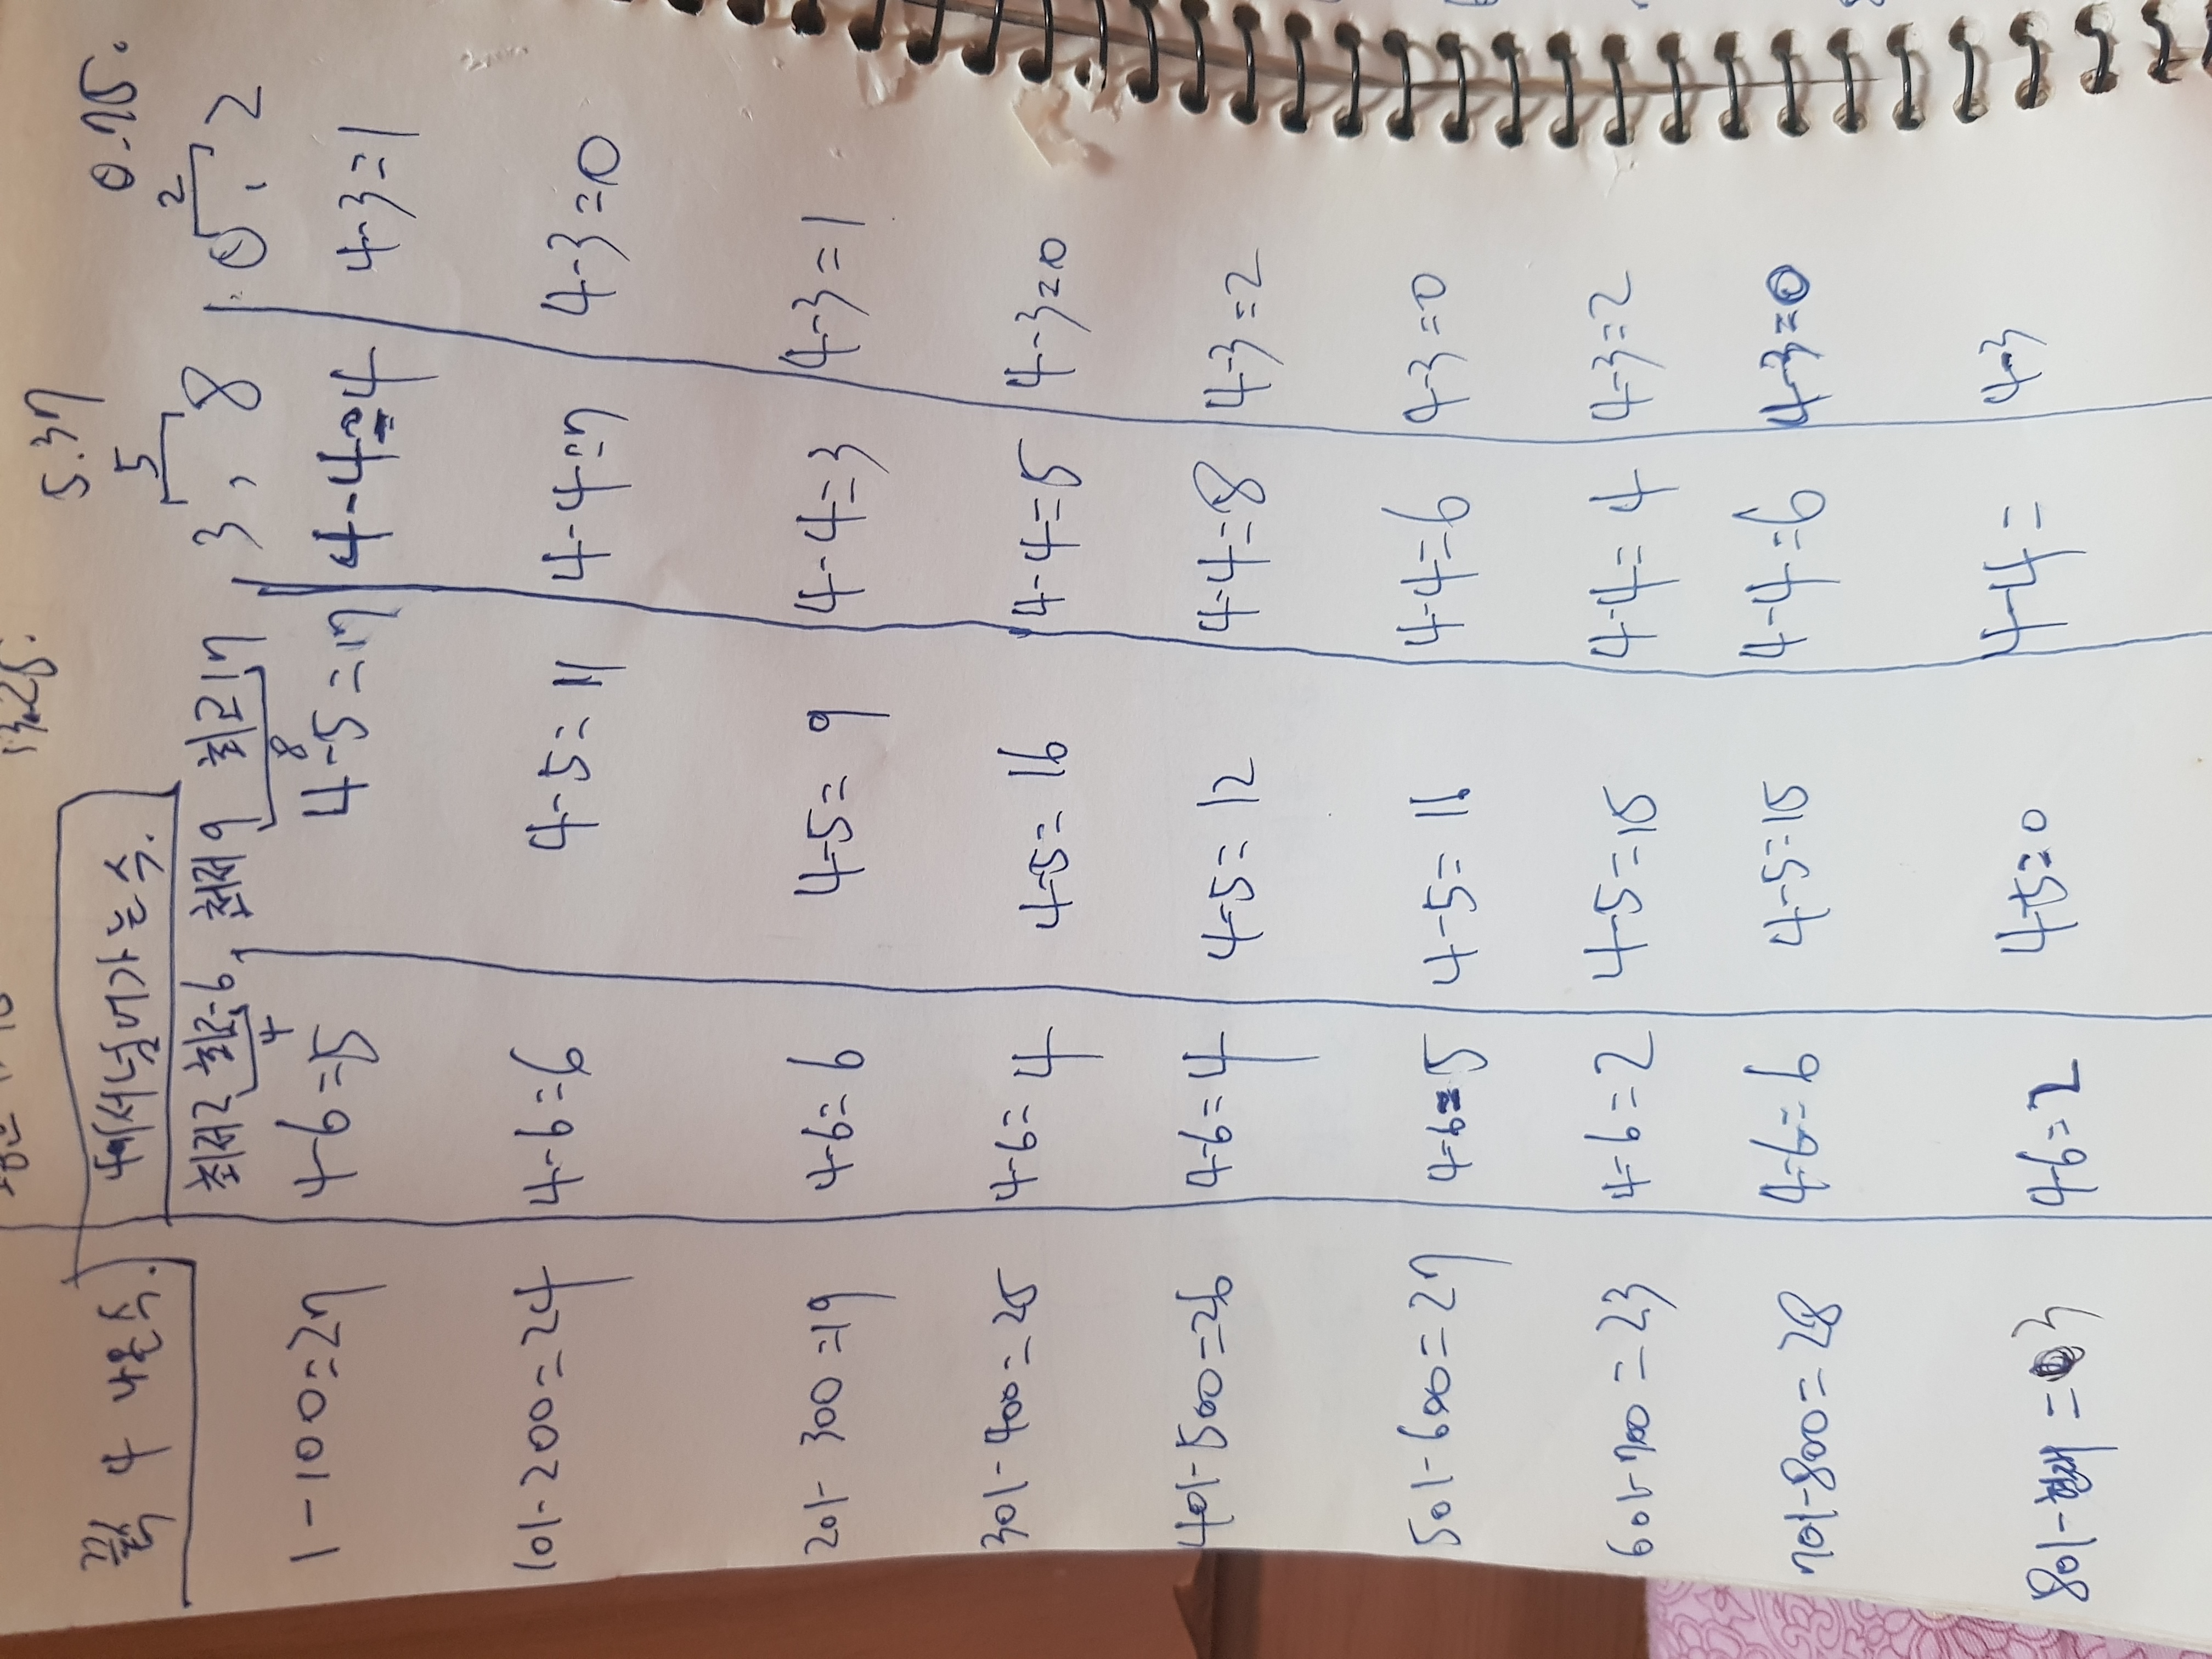 5.37 0.75.
끝 4 나온수. 4에서넘어가는수.
최저2 최고6, 최저9 최고17 3, 8 0, 2
4 8 5 2
1-100=27 4-6=5 4-5=17 4-4=4 4-3=1
101-200=24 4-6=6 4-5=11 4-4=7 4-3=0
201-300=19 4-6=6 4-5=9 4-4=3 4-3=1
301-400=25 4-6=4 4-5=16 4-4=5 4-3=0
401-500=26 4-6=4 4-5=12 4-4=8 4-3=2
501-600=27 4-6=5 4-5=16 4-4=6 4-3=0
601-700=23 4-6=2 4-5=15 4-4=4 4-3=2
701-800=28 4-6=6 4-5=15 4-4=6 4-3=0
801- =3 4-6=2 4-5=0 4-4= 4-3